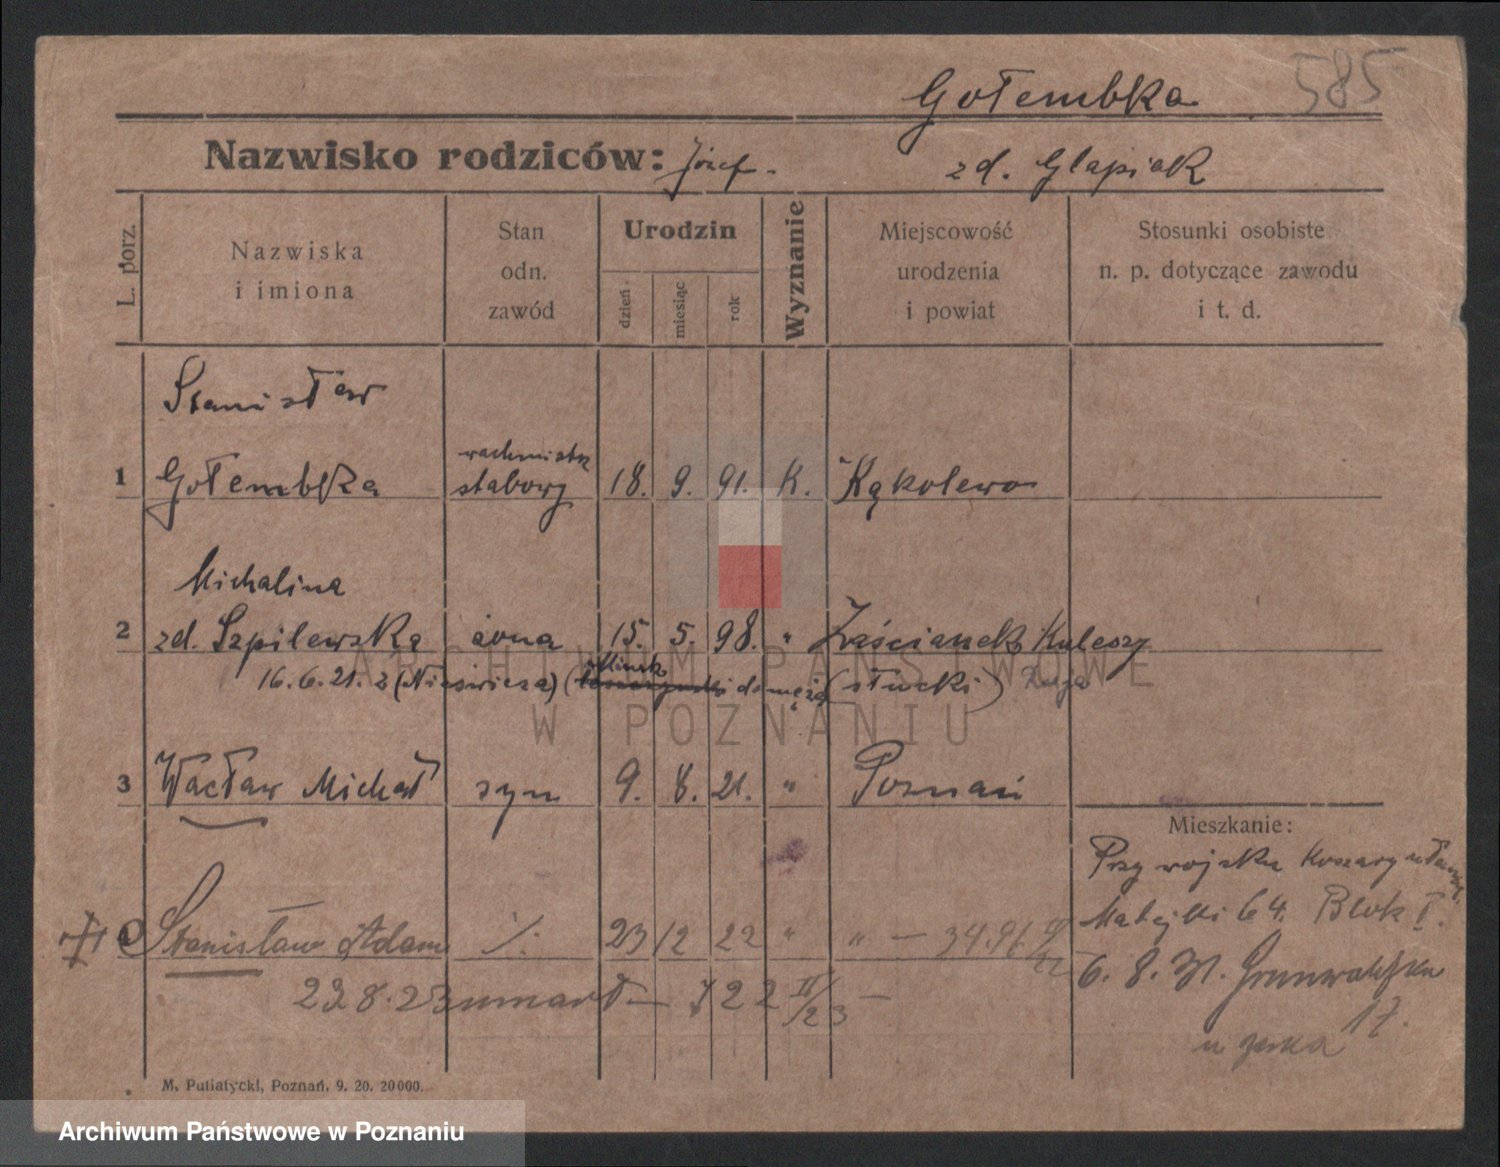 Gołembka 585
Nazwisko rodziców: Józef. zd. Glapiak
L. porz.
Nazwiska
i imiona
Stan
odn.
zawód
Urodzin
dzień
miesiąc
rok
Wyznanie
Miejscowość
urodzenia
i powiat
Stosunki osobiste
n. p. dotyczące zawodu
i t. d.
Stanisław
1 Gołembka wachmistrz sztabowy 18. 9. 91. K. Kąkolewo
Michalina
2 zd. Szpilewska żona 15. 5. 98. " Zaścianek Kuleszy
16.6.21. z (Nieświeża) do męża (słucki)
3 Wacław Michał syn 9. 8. 21. " Poznań
Mieszkanie:
Przy wojsku Koszary
Matejki 64. Blok I.
4 Stanisław Adam ·/· 23 12 22 " " — 34.91
6. 8. 31. Grunwaldzka
23.8.23 umarł — 722 II/23 —
17.
u
M. Putiatycki, Poznań, 9. 20. 20000.
ARCHIWUM PAŃSTWOWE
W POZNANIU
Archiwum Państwowe w Poznaniu